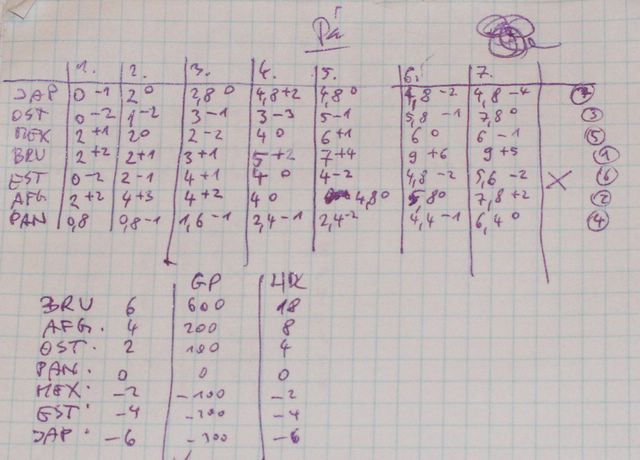 Pá
1. 2. 3. 4. 5. 6. 7.
JAP 0 -1 2 0 2,8 0 4,8 +2 4,8 0 4,8 -2 4,8 -4 7
OST 0 -2 1 -2 3 -1 3 -3 5 -1 5,8 -1 7,8 0 3
MEX 2 +1 2 0 2 -2 4 0 6 +1 6 0 6 -1 5
BRU 2 +2 2 +1 3 +1 5 +2 7 +4 9 +6 9 +5 1
EST 0 -2 2 -1 4 +1 4 0 4 -2 4,8 -2 5,6 -2 X 6
AFG 2 +2 4 +3 4 +2 4 0 4,8 0 5,8 0 7,8 +2 2
PAN 0,8 0,8 -1 1,6 -1 2,4 -1 2,4 -2 4,4 -1 6,4 0 4
GP
BRU 6 600 18
AFG. 4 200 8
OST. 2 100 4
PAN. 0 0 0
MEX. -2 -100 -2
EST. -4 -200 -4
JAP. -6 -300 -6